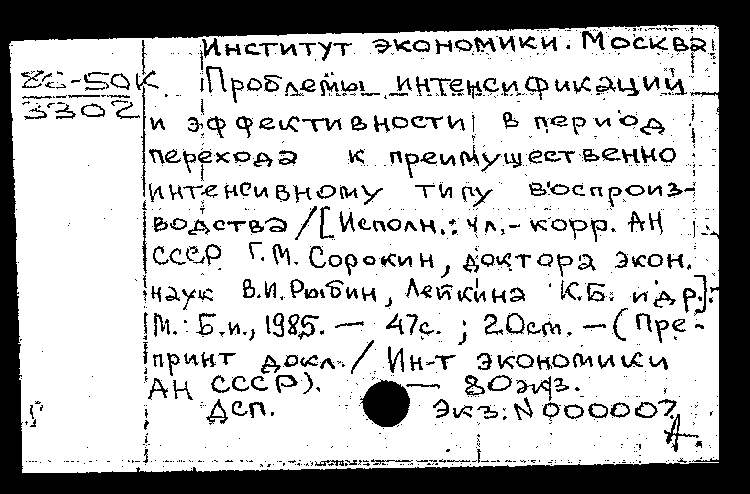 Институт экономики. Москва
86-50К
3302
Проблемы интенсификации
и эффективности в период
перехода к преимущественно
интенсивному типу воспроиз-
водства /[Исполн.: чл.-корр. АН
СССР Г.М. Сорокин, доктора экон.
наук В.И. Рыбин, Лепкина К.Б. и др.].
М.: Б.и., 1985. — 47с. ; 20см. — (Пре-
принт докл. / Ин-т экономики
АН СССР). — 80экз.
Дсп. Экз: N 000007